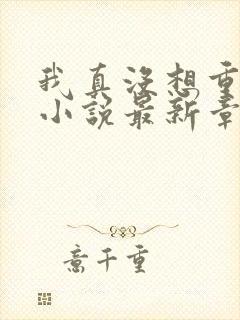 我真没想重
小说最新章
意千重